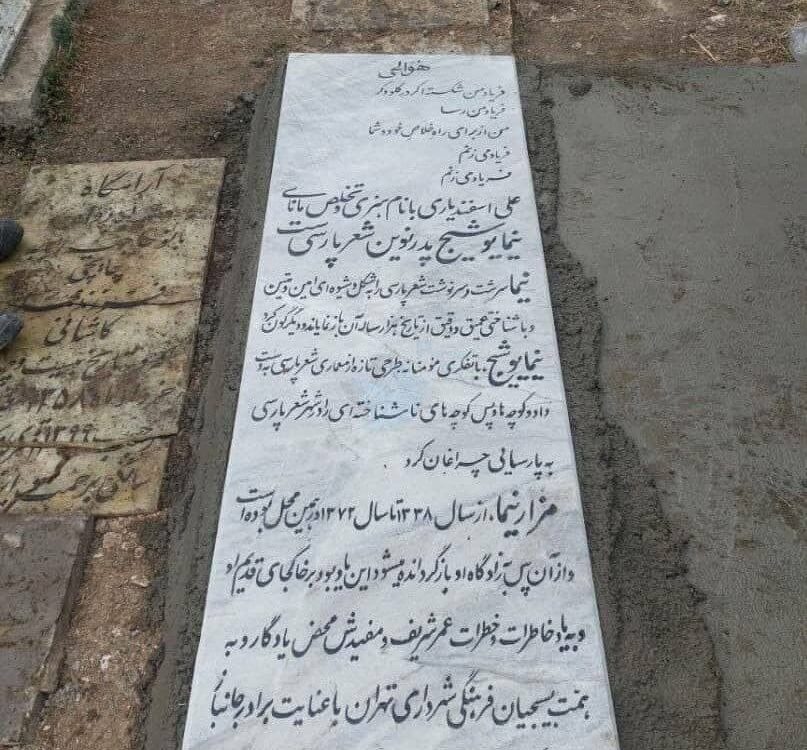 هوالحی
فریاد من شکسته اگر در گلو وگر
فریاد من رسا
من از برای راه خلاص خود و شما
فریاد می زنم
فریاد می زنم
علی اسفندیاری با نام هنری و تخلص مانای
نیما یوشیج پدر نوین شعر پارسی ست
نیما سرشت و سرنوشت شعر پارسی را به شکل و شیوه ای امین و متین
و با شناختی عمیق و دقیق از تاریخ هزار ساله آن باز نمایاند و دیگرگون کرد
نیما یوشیج، با تفکری مؤمنانه طرحی تازه از معماری شعر پارسی به دست
داد و کوچه ها و پس کوچه های ناشناخته ای را در شهر شعر پارسی
به پارسایی چراغان کرد.
مزار نیما، از سال ۱۳۳۸ تا سال ۱۳۷۲ در همین محل بوده است
و از آن پس به زادگاه او بازگردانده میشود این یادبود بر خاکجای قدیم او
و به یاد خاطرات و خطرات عمر شریف و مفیدش محض یادگار و به
همت بسیجیان فرهنگی شهرداری تهران با عنایت برادر جانباز
آرامگاه
بانو
کاشانی
۱۳۵۸
۱۳۹۹